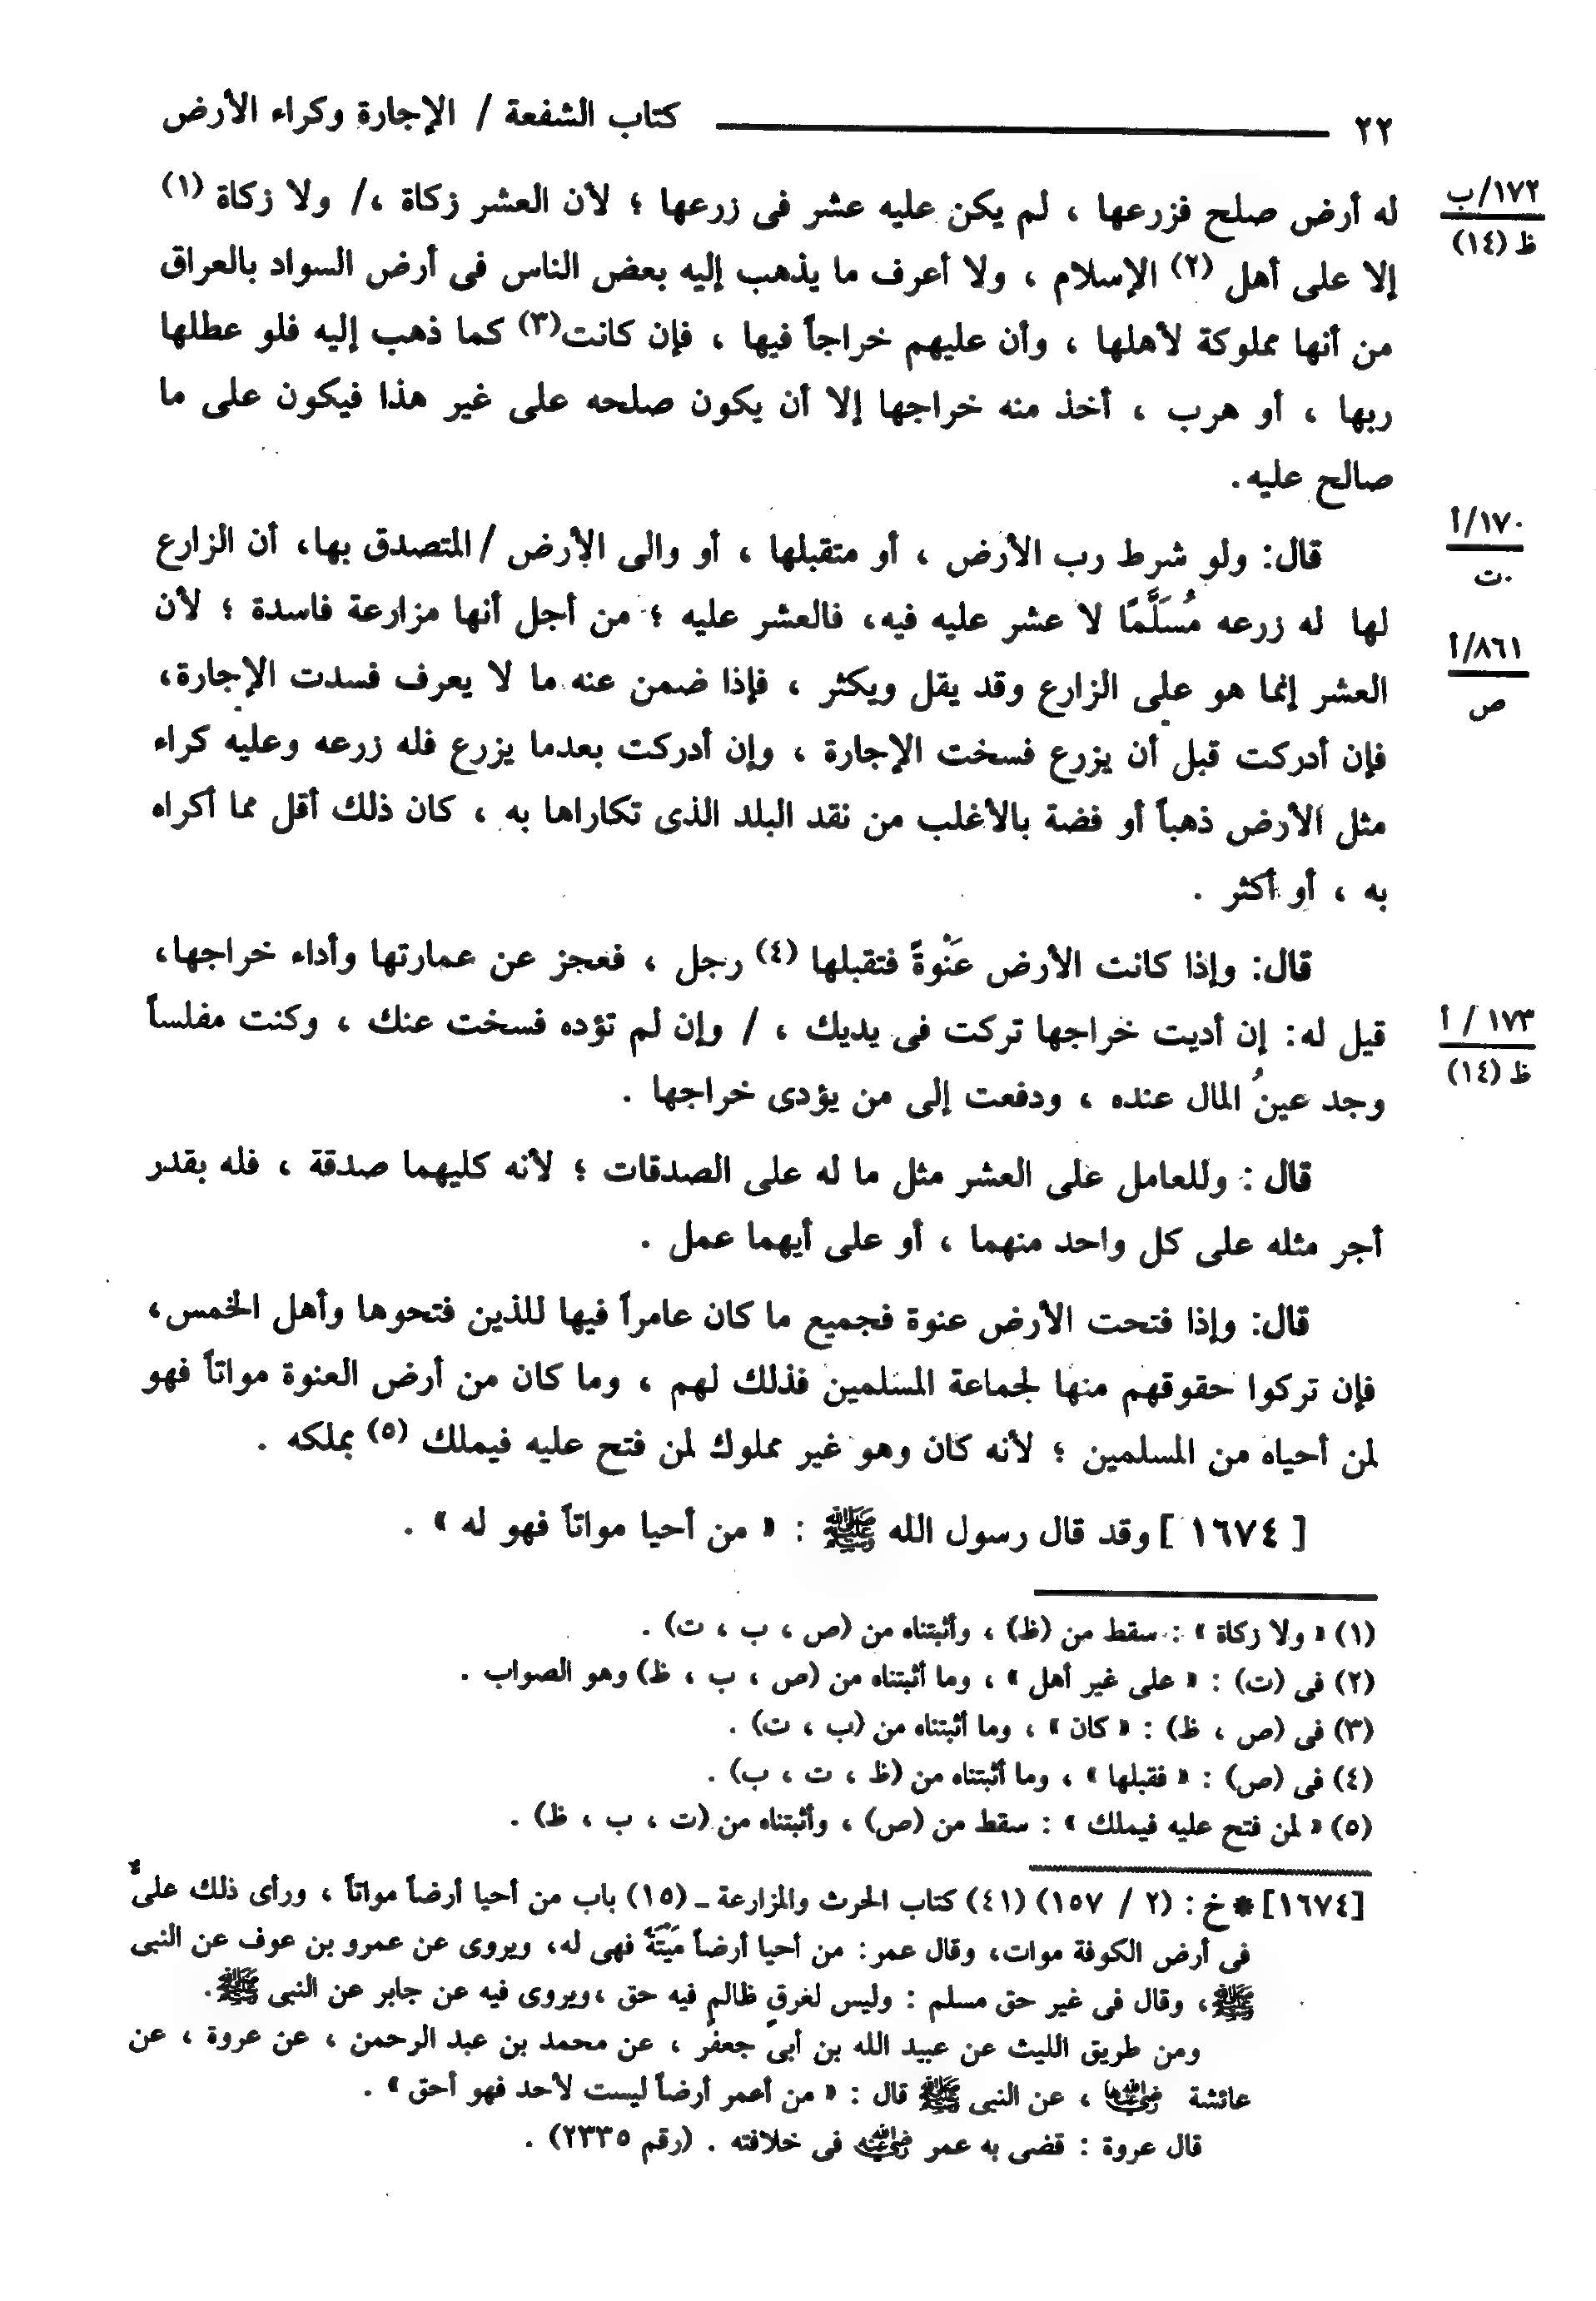 ٢٢ كتاب الشفعة / الإجارة وكراء الأرض
له أرض صلح فزرعها ، لم يكن عليه عشر فى زرعها ؛ لأن العشر زكاة ،/ ولا زكاة (١)
١٧٢/ب
ظ (١٤)
إلا على أهل (٢) الإسلام ، ولا أعرف ما يذهب إليه بعض الناس فى أرض السواد بالعراق
من أنها مملوكة لأهلها ، وأن عليهم خراجاً فيها ، فإن كانت(٣) كما ذهب إليه فلو عطلها
ربها ، أو هرب ، أخذ منه خراجها إلا أن يكون صلحه على غير هذا فيكون على ما
صالح عليه.
قال: ولو شرط رب الأرض ، أو متقبلها ، أو والى الأرض /المتصدق بها، أن الزارع
١٧٠/أ
ت
لها له زرعه مُسَلَّمًا لا عشر عليه فيه، فالعشر عليه ؛ من أجل أنها مزارعة فاسدة ؛ لأن
٨٦١/أ
ص
العشر إنما هو على الزارع وقد يقل ويكثر ، فإذا ضمن عنه ما لا يعرف فسدت الإجارة،
فإن أدركت قبل أن يزرع فسخت الإجارة ، وإن أدركت بعدما يزرع فله زرعه وعليه كراء
مثل الأرض ذهباً أو فضة بالأغلب من نقد البلد الذى تكاراها به ، كان ذلك أقل مما أكراه
به ، أو أكثر .
قال: وإذا كانت الأرض عَنْوةً فتقبلها (٤) رجل ، فعجز عن عمارتها وأداء خراجها،
قيل له: إن أديت خراجها تركت فى يديك ، / وإن لم تؤده فسخت عنك ، وكنت مفلساً
١٧٣ / أ
ظ (١٤)
وجد عينُ المال عنده ، ودفعت إلى من يؤدى خراجها .
قال : وللعامل على العشر مثل ما له على الصدقات ؛ لأنه كليهما صدقة ، فله بقدر
أجر مثله على كل واحد منهما ، أو على أيهما عمل .
قال: وإذا فتحت الأرض عنوة فجميع ما كان عامراً فيها للذين فتحوها وأهل الخمس،
فإن تركوا حقوقهم منها لجماعة المسلمين فذلك لهم ، وما كان من أرض العنوة مواتاً فهو
لمن أحياه من المسلمين ؛ لأنه كان وهو غير مملوك لمن فتح عليه فيملك (٥) بملكه .
[ ١٦٧٤ ] وقد قال رسول الله ﷺ : « من أحيا مواتاً فهو له » .
(١) « ولا زكاة » : سقط من (ظ) ، وأثبتناه من (ص ، ب ، ت) .
(٢) فى (ت) : « على غير أهل » ، وما أثبتناه من (ص ، ب ، ظ) وهو الصواب .
(٣) فى (ص ، ظ) : « كان » ، وما أثبتناه من (ب ، ت) .
(٤) فى (ص) : « فقبلها » ، وما أثبتناه من (ظ ، ت ، ب) .
(٥) « لمن فتح عليه فيملك » : سقط من (ص) ، وأثبتناه من (ت ، ب ، ظ) .
[١٦٧٤] * خ : (٢ / ١٥٧) (٤١) كتاب الحرث والمزارعة ـ (١٥) باب من أحيا أرضاً مواتاً ، ورأى ذلك على
فى أرض الكوفة موات، وقال عمر: من أحيا أرضاً مَيْتَةً فهى له، ويروى عن عمرو بن عوف عن النبى
ﷺ، وقال فى غير حق مسلم : وليس لغرقٍ ظالمٍ فيه حق ،ويروى فيه عن جابر عن النبى ﷺ.
ومن طريق الليث عن عبيد الله بن أبى جعفر ، عن محمد بن عبد الرحمن ، عن عروة ، عن
عائشة رضي الله عنها ، عن النبى ﷺ قال : « من أعمر أرضاً ليست لأحد فهو أحق » .
قال عروة : قضى به عمر رضي الله عنه فى خلافته . (رقم ٢٣٣٥) .